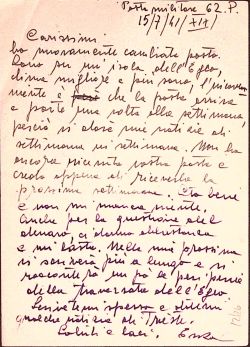 Posta militare 62. P.
15/7/41/XIX
Carissimi
ho nuovamente cambiato posto.
Sono su un'isola dell'Egeo,
clima migliore e più sano, l'inconve
niente è che la posta arriva
e parte una volta alla settimana,
perciò vi darò mie notizie di
settimana in settimana. Non ho
ancora ricevuto vostra posta e
credo appena di riceverla la
prossima settimana. Sto bene
e non mi manca niente.
Anche per la questione del
denaro, ci danno abbastanza
e mi basta. Nella mia prossima
vi scriverò più a lungo e vi
racconterò un po' le peripezie
della traversata dell'Egeo
Scrivetemi spesso e datemi
qualche notizia di Trieste.
Saluti e baci.